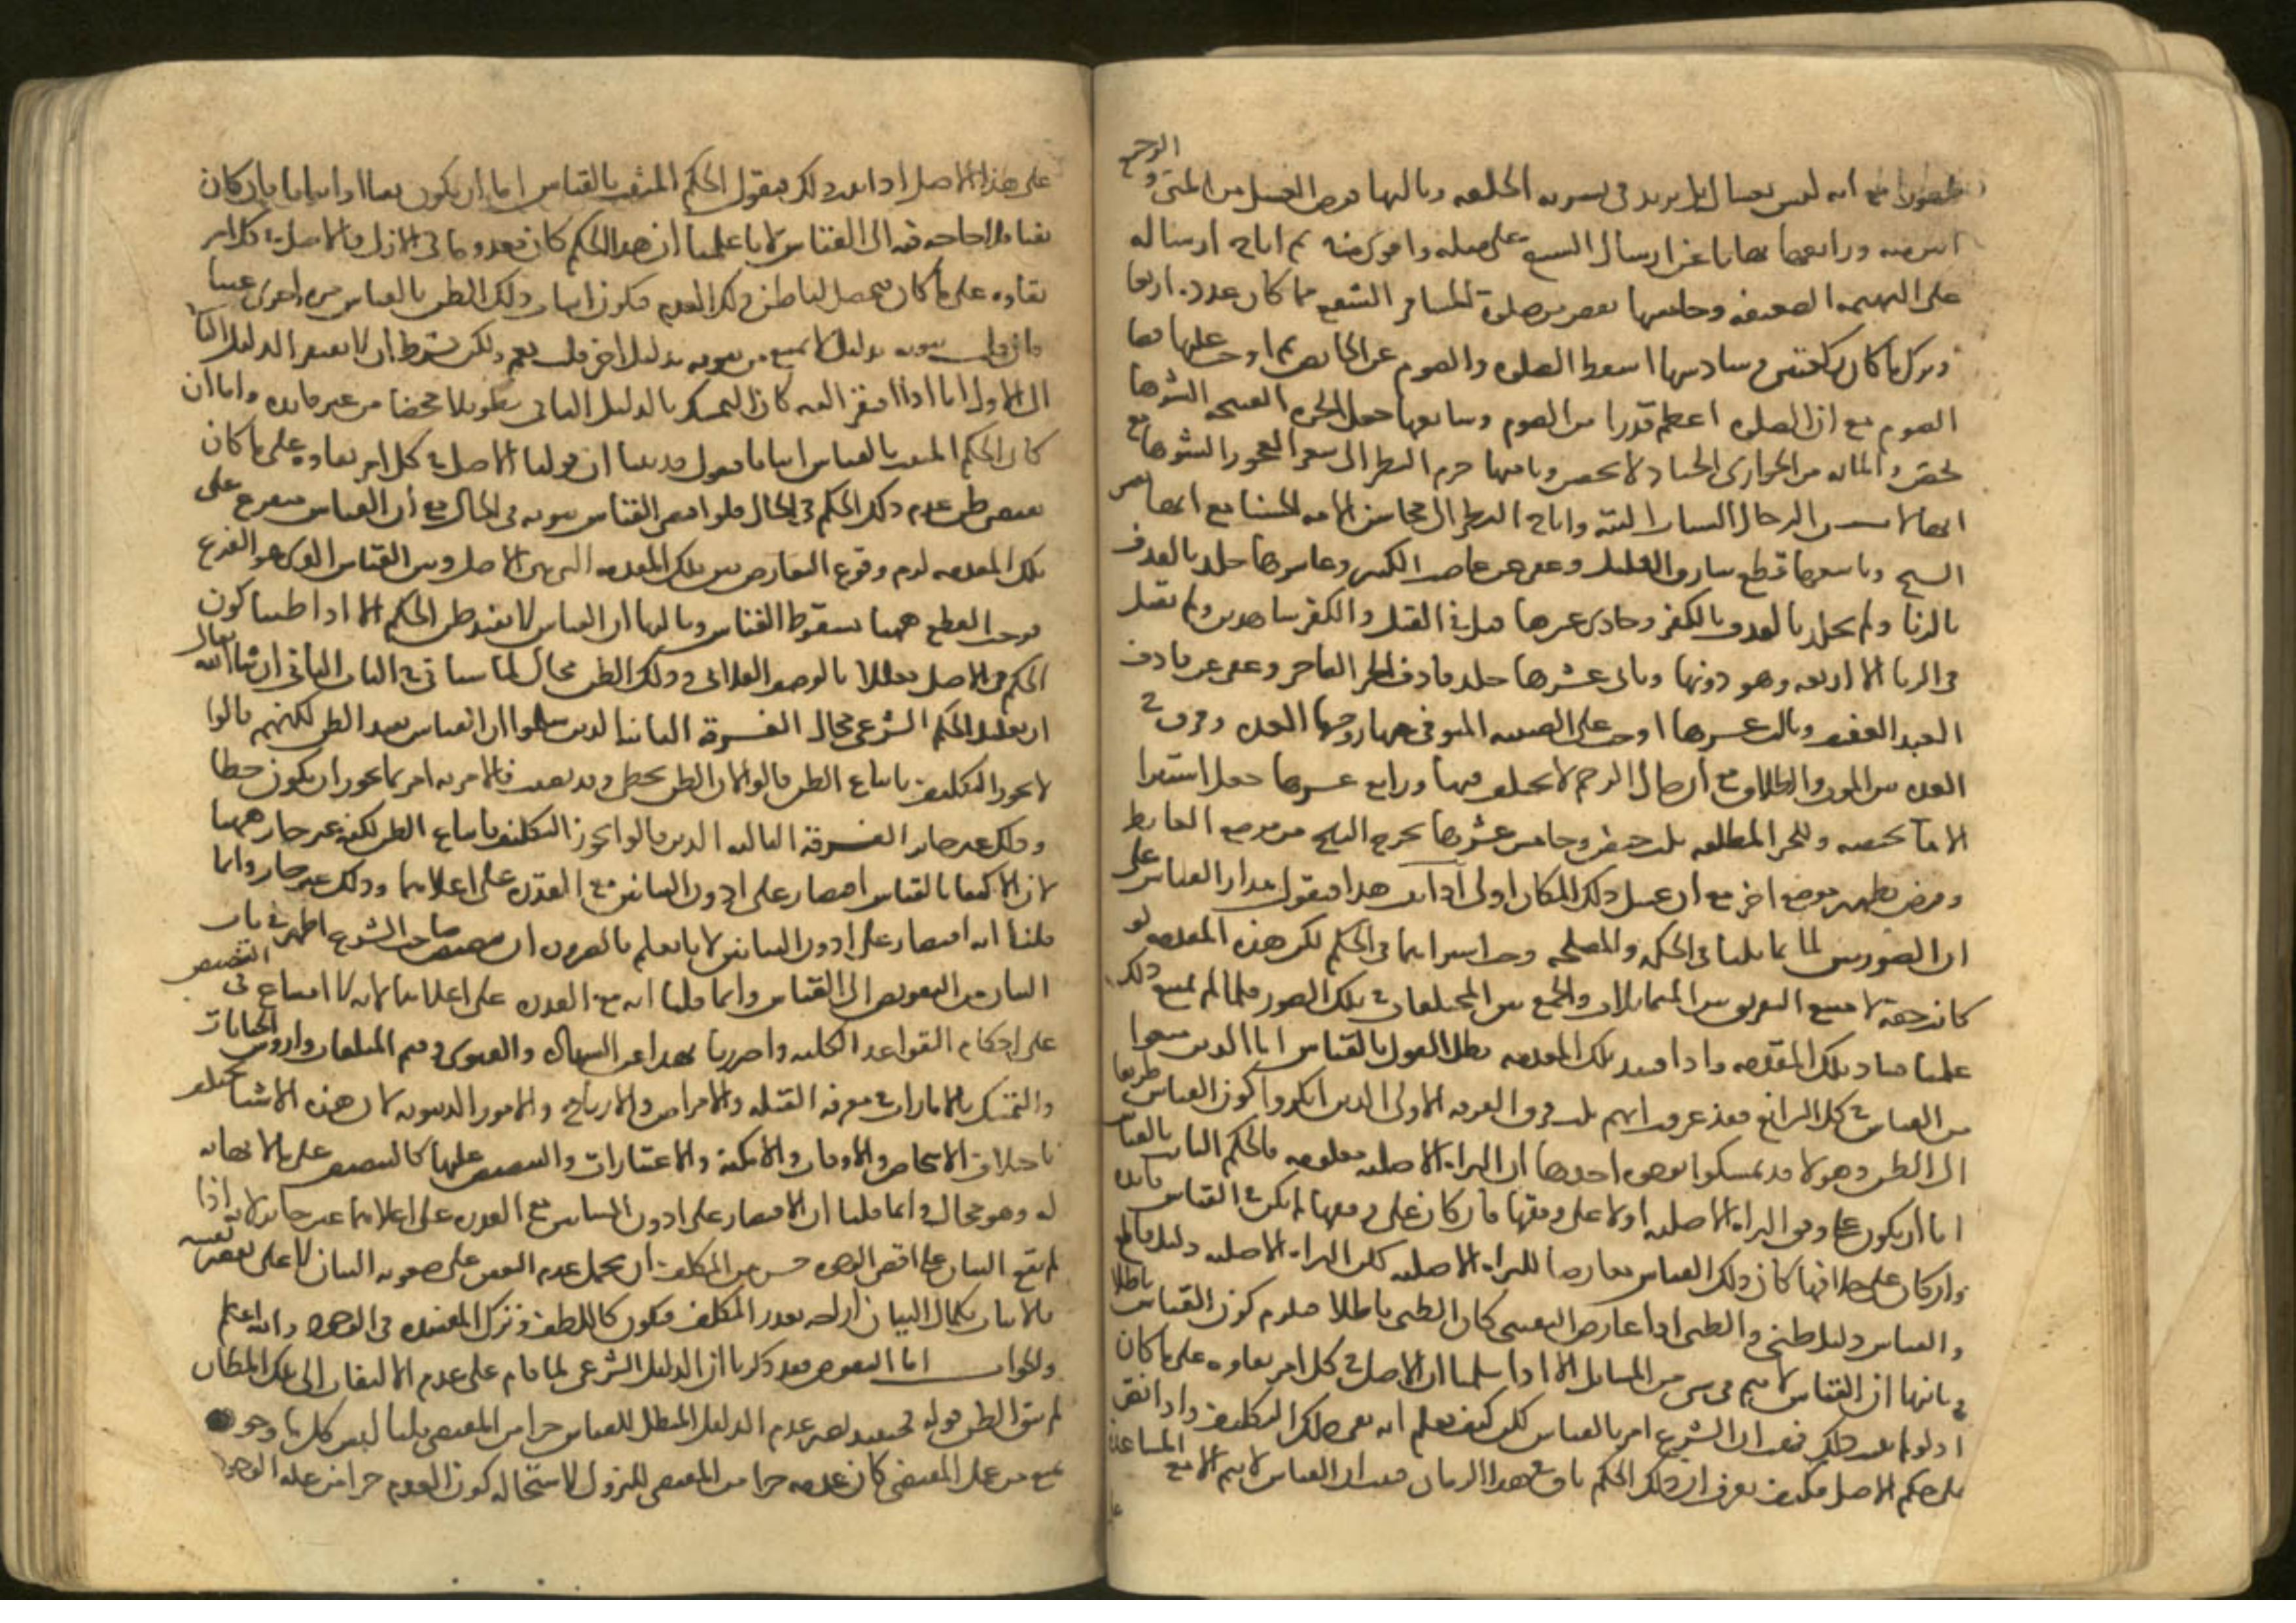 انه ليس بمسال بل يزيد في تسويه الخلقه وثالثها فرض الغسل من المنى والرجيع
انتن منه ورابعها نهانا عن ارسال السبع على مثله واقوى منه ثم اباح ارساله
على البهيمه الضعيفه وخامسها نقص من صلوة المسافر الشطر مما كان عدده اربعا
وترك ما كان ركعتين وسادسها اسقط الصلوه والصوم عن الحائض ثم اوجب عليها قضا
الصوم مع ان الصلوه اعظم قدرا من الصوم وسابعها جعل الحره القبيحه الشوها
تحصن والمائه من الجوارى الحسان لا تحصن وثامنها حرم النظر الى شعر العجوز الشوها مع
انها لا الرجال الشبان البتة واباح النظر الى محاسن الامه الحسنا مع انها
الشيخ وتاسعها قطع سارق القليل وعفى عن غاصب الكثير وعاشرها جلد بالقذف
بالزنا ولم يجلد بالقذف بالكفر وحادى عشرها قبل في القتل والكفر شاهدين ولم يقبل
في الزنا الا اربعه وهو دونها وثانى عشرها جلد قاذف الحر الفاجر وعفى عن قاذف
العبد العفيف وثالث عشرها اوجب على الصبيه المتوفى عنها زوجها العده وفرق في
العده بين الموت والطلاق مع ان حال الرحم لا يختلف فيها ورابع عشرها جعل استبرا
الامة بحيضه وللحره المطلقه بثلث حيض وخامس عشرها يخرج الريح من موضع الغايط
وفرض تطهير موضع اخر مع ان غسل ذلك المكان اولى اذا ثبت هذا فنقول مدار القياس على
ان الصورتين لما تماثلتا في الحكمه والمصلحه وجب استواهما في الحكم لكن هذه المقدمه لو
كانت حقة لامتنع التفريق بين المتماثلات والجمع بين المختلفات في تلك الصور فلما لم يمتنع ذلك
علمنا فساد تلك المقدمه واذا فسدت تلك المقدمه بطل القول بالقياس اما الذين منعوا
من القياس في كل الشرائع فقد عرفت انهم ثلث فرق الفرقه الاولى الذين انكروا كون القياس طريقا
الى الظن وهولا قد تمسكوا بوجوه احدها ان البراه الاصليه معلومه فالحكم الثابت بالقياس
اما ان يكون على وفق البراه الاصليه اولا على وفقها فان كان على وفقها لم يكن في القياس فائده
وان كان على خلافها كان ذلك القياس معارضا للبراه الاصليه لكن البراه الاصليه دليل قاطع
والقياس دليل ظني والظنى اذا عارض اليقينى كان الظنى باطلا فيلزم كون القياس باطلا
وثانيها ان القياس لا يتم في شى من المسائل الا اذا سلمنا ان الاصل في كل امر بقاوه على ما كان
اذ لو لم يثبت ذلك فهب ان الشرع امر بالقياس لكن كيف يعلم انه بقى ذلك التكليف واذا نص
على حكم الاصل فكيف يعرف ان ذلك الحكم باق في هذا الزمان فثبت ان القياس لا يتم الا مع المساعدة
على هذا الاصل اذا ثبت ذلك فنقول الحكم المثبت بالقياس اما ان يكون نفيا او اثباتا فان كان
نفيا فلا حاجه فيه الى القياس لانا علمنا ان هذا الحكم كان معدوما في الازل والاصل في كل امر
بقاوه على ما كان فيحصل لنا ظن ذلك العدم فيكون اثبات ذلك الظن بالقياس مره اخرى عبثا
فان قلت ثبوته بدليل لا يمنع من ثبوته بدليل اخر قلت نعم ولكن بشرط ان لا يفتقر الدليل الثاني
الى الاول اما اذا افتقر اليه كان التمسك بالدليل الثانى تطويلا محضا من غير فائده واما ان
كان الحكم المثبت بالقياس اثباتا فنقول قد بينا ان قولنا الاصل في كل امر بقاوه على ما كان
يقتضى ظن عدم ذلك الحكم في الحال فلو اقتضى القياس ثبوته في الحال مع ان القياس متفرع على
تلك المقدمه لزم وقوع التعارض بين تلك المقدمه التى هى الاصل وبين القياس الذى هو الفرع
فوجب القطع ههنا بسقوط القياس وثالثها ان القياس لا يفيد ظن الحكم الا اذا ظننا كون
الحكم في الاصل معللا بالوصف الفلانى وذلك الظن محال لما سياتى في الباب الثانى ان شا الله تعالى
ان تعليل الحكم الشرعى محال الفرقة الثانيه الذين سلموا ان القياس يفيد الظن لكنهم قالوا
لا يجوز التكليف باتباع الظن قالوا لان الظن يخطى وقد يصيب فالامر به امر بما يجوز ان يكون خطا
وذلك غير جائز الفرقة الثالثه الذين قالوا يجوز التكليف باتباع الظن لكنه غير جائز ههنا
لان الاكتفا بالقياس اقتصار على ادون البيانين مع القدره على اعلاهما وذلك غير جائز وانما
قلنا انه اقتصار على ادون البيانين لانا نعلم بالضروره ان تنصيص صاحب الشرع اظهر في باب
البيان من التفويض الى القياس وانما قلنا انه مع القدره على اعلاهما لانه لا امتناع في التنصيص
على احكام القواعد الكليه واحترزنا بهذا عن الشهاده والفتوى وقيم المتلفات واروش الجنايات
والتمسك بالامارات في معرفه القبله والامراض والارباح والامور الدنيويه لان هذه الاشيا تختلف
باختلاف الاشخاص والاوقات والامكنه والاعتبارات والتنصيص عليها كالتنصيص على ما لا نهايه
له وهو محال وانما قلنا ان الاقتصار على ادون البيانين مع القدره على اعلاهما غير جائز لانه اذا
لم يقع البيان على اقصى الوجوه حسن من المكلف ان يحمل عدم الفهم على صعوبه البيان لا على تقصير نفسه
فالاتيان بكمال البيان ازاحه لعذر المكلف فيكون كاللطف وترك المفسده في الوجوب والله اعلم
والجواب اما النقوض فقد ذكرنا ان الدليل الشرعى لما قام على عدم الالتفات الى تلك المظان
لم يبق الظن قوله فحينئذ يصير عدم الدليل المبطل للقياس جزا من المقتضى قلنا ليس كل ما وجوده
يمنع من عمل المقتضى كان عدمه جزا من المقتضى للنزول لاستحاله كون العدم جزا من عله الوجود